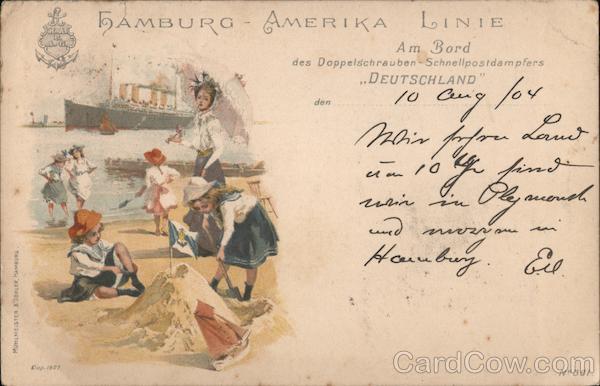 HAMBURG - AMERIKA LINIE
Am Bord
des Doppelschrauben-Schnellpostdampfers
„DEUTSCHLAND"
den 10 Aug/04
Wir sehen Land
um 10 Uhr sind
wir in Plymouth
und morgen in
Hamburg.
MÜHLMEISTER & JOHLER, HAMBURG
CardCow.com